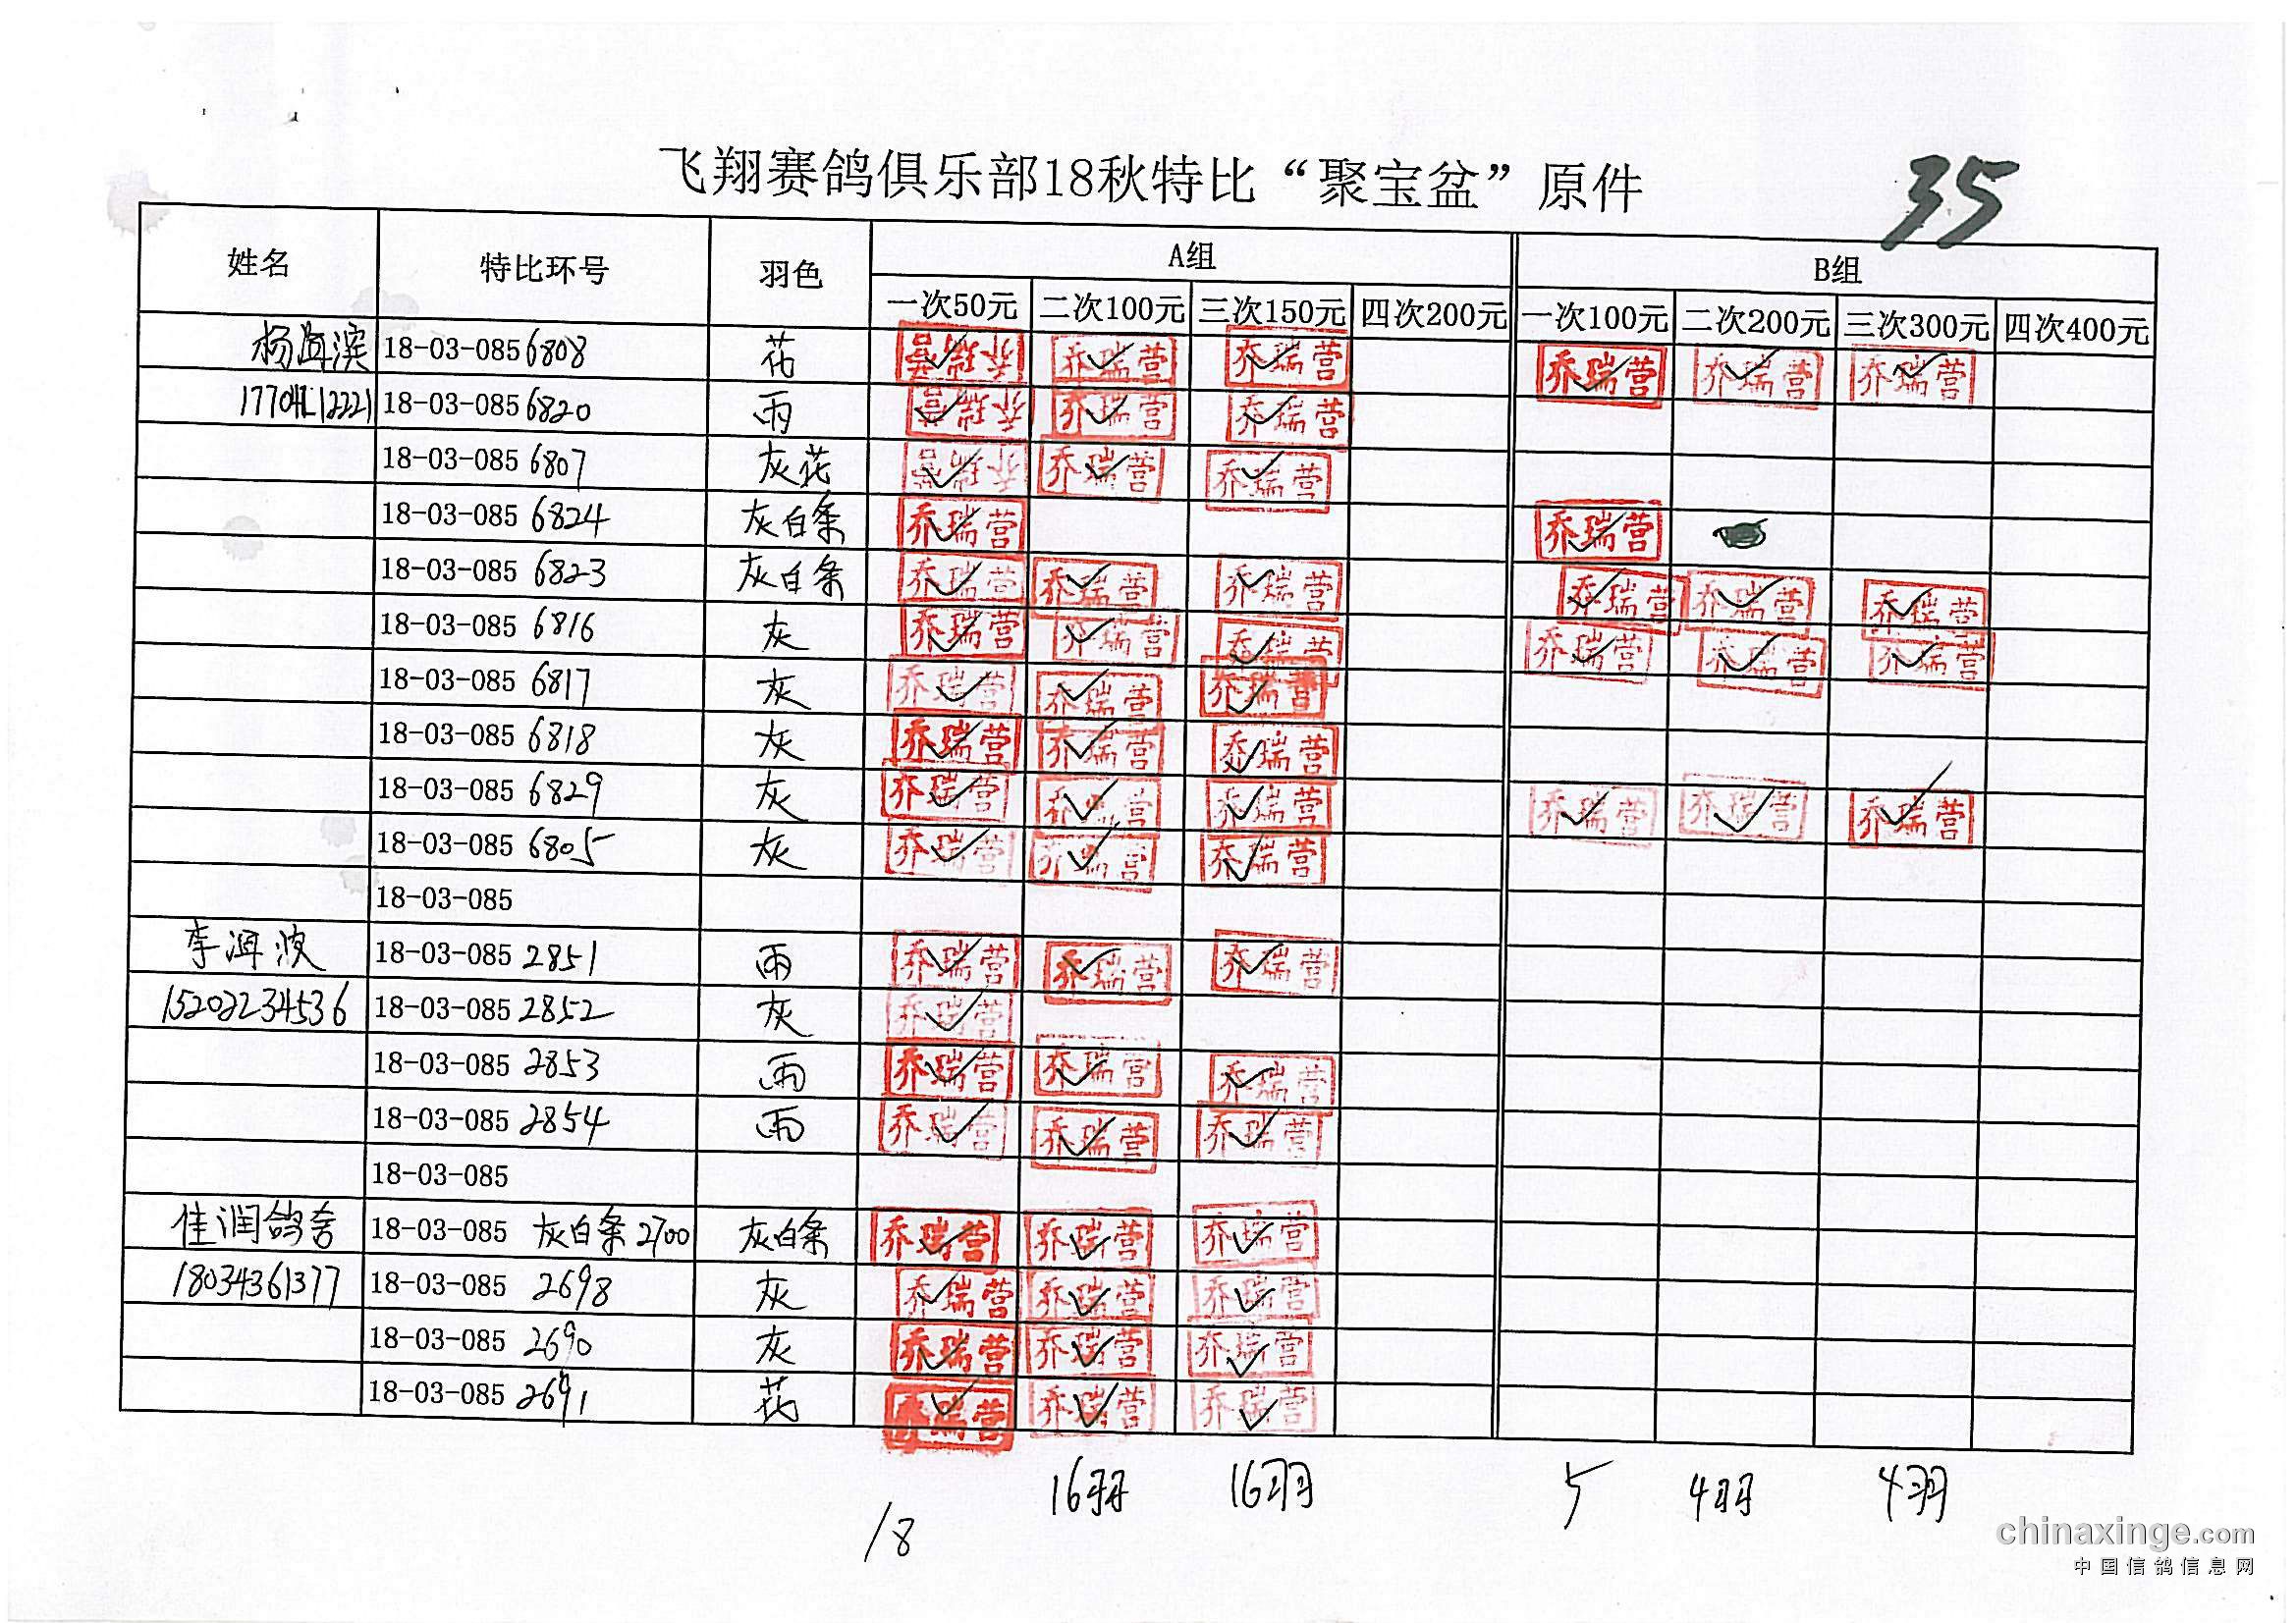 飞翔赛鸽俱乐部18秋特比“聚宝盆”原件 35
姓名 特比环号 羽色 A组 B组
一次50元 二次100元 三次150元 四次200元 一次100元 二次200元 三次300元 四次400元
杨海滨 18-03-085 6808 花 乔瑞营 乔瑞营 乔瑞营 乔瑞营 乔瑞营 乔瑞营
18-03-085 6820 雨 乔瑞营 乔瑞营 乔瑞营
18-03-085 6807 灰花 乔瑞营 乔瑞营 乔瑞营
18-03-085 6824 灰白条 乔瑞营 乔瑞营
18-03-085 6823 灰白条 乔瑞营 乔瑞营 乔瑞营 乔瑞营 乔瑞营 乔瑞营
18-03-085 6816 灰 乔瑞营 乔瑞营 乔瑞营 乔瑞营 乔瑞营 乔瑞营
18-03-085 6817 灰 乔瑞营 乔瑞营 乔瑞营
18-03-085 6818 灰 乔瑞营 乔瑞营 乔瑞营
18-03-085 6829 灰 乔瑞营 乔瑞营 乔瑞营 乔瑞营 乔瑞营 乔瑞营
18-03-085 6805 灰 乔瑞营 乔瑞营 乔瑞营
18-03-085
李洱波 18-03-085 2851 雨 乔瑞营 乔瑞营 乔瑞营
15202234536 18-03-085 2852 灰 乔瑞营
18-03-085 2853 雨 乔瑞营 乔瑞营 乔瑞营
18-03-085 2854 雨 乔瑞营 乔瑞营 乔瑞营
18-03-085
佳润鸽舍 18-03-085 灰白条2700 灰白条 乔瑞营 乔瑞营 乔瑞营
18034361377 18-03-085 2698 灰 乔瑞营 乔瑞营 乔瑞营
18-03-085 2690 灰 乔瑞营 乔瑞营 乔瑞营
18-03-085 2691 花 乔瑞营 乔瑞营 乔瑞营
18 16羽 16羽 5 4羽 4羽
chinaxinge.com
中国信鸽信息网